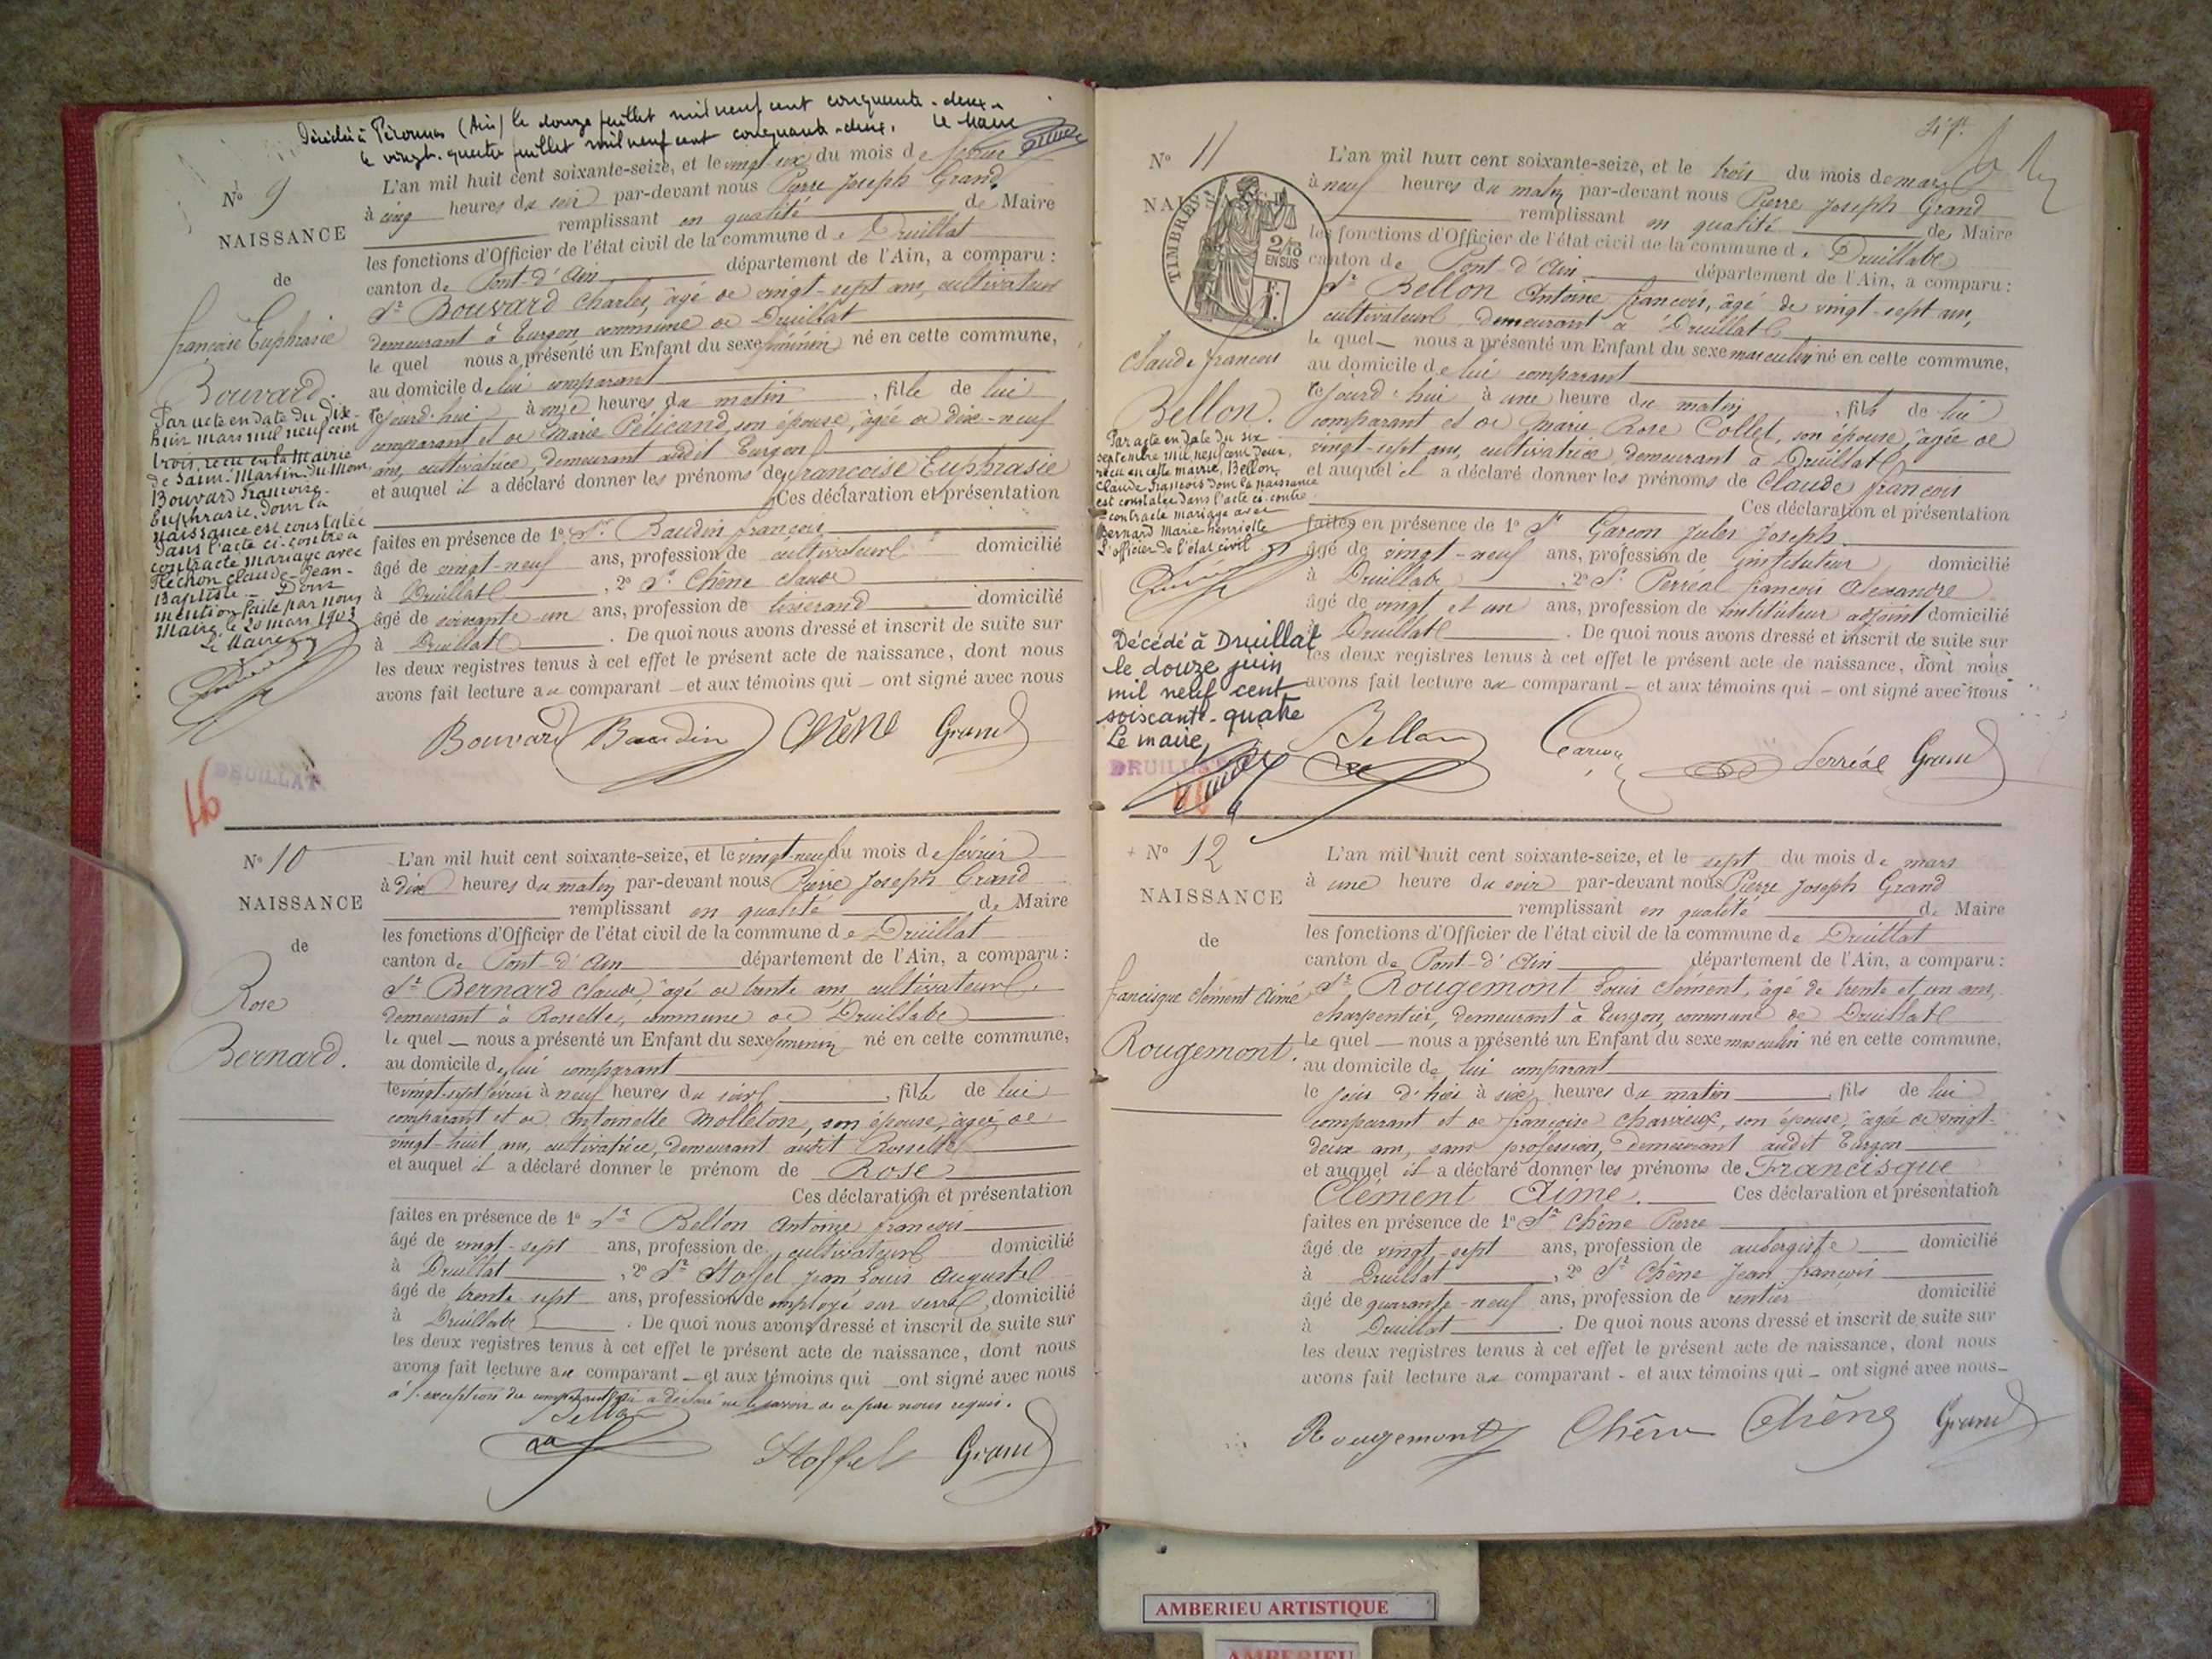 Décédée à Péronnas (Ain) le douze juillet mil neuf cent cinquante-deux.
le vingt-quatre juillet mil neuf cent cinquante-deux. Le Maire
N° 9
NAISSANCE
de
françoise Euphrasie
Bouvard.
Par acte en date du dix-
huit mars mil neuf cent
trois, reçu en la Mairie
de Saint-Martin-du-Mont
Bouvard Françoise-
Euphrasie, dont la
naissance est constatée
dans l'acte ci-contre a
contracté mariage avec
Fléchon Claude-Jean-
Baptiste - Dont
mention faite par nous
Maire, le 20 mars 1903
Le Maire
DRUILLAT
L'an mil huit cent soixante-seize, et le vingt-six du mois de février
à cinq heures du soir par-devant nous Pierre Joseph Grand
remplissant en qualité de Maire
les fonctions d'Officier de l'état civil de la commune de Druillat
canton de Pont-d'Ain département de l'Ain, a comparu :
Sr Bouvard Charles, âgé de vingt-sept ans, cultivateur
demeurant à Turgon commune de Druillat
le quel nous a présenté un Enfant du sexe féminin né en cette commune,
au domicile de lui comparant
cejourd'hui à onze heures du matin, fille de lui
comparant et de Marie Pélicand, son épouse, âgée de dix-neuf
ans, cultivatrice, demeurant audit Turgon
et auquel il a déclaré donner les prénoms de françoise Euphrasie
Ces déclaration et présentation
faites en présence de 1° Sr Baudin françois
âgé de vingt-neuf ans, profession de cultivateur domicilié
à Druillat, 2° Sr Chêne claude
âgé de soixante-un ans, profession de tisserand domicilié
à Druillat. De quoi nous avons dressé et inscrit de suite sur
les deux registres tenus à cet effet le présent acte de naissance, dont nous
avons fait lecture au comparant et aux témoins qui ont signé avec nous
Bouvard Baudin Chêne Grand
N° 10
NAISSANCE
de
Rose
Bernard.
L'an mil huit cent soixante-seize, et le vingt-neuf du mois de février
à dix heures du matin par-devant nous Pierre Joseph Grand
remplissant en qualité de Maire
les fonctions d'Officier de l'état civil de la commune de Druillat
canton de Pont-d'Ain département de l'Ain, a comparu :
Sr Bernard claude, âgé de trente ans, cultivateur
demeurant à Rossette, commune de Druillat
le quel nous a présenté un Enfant du sexe féminin né en cette commune,
au domicile de lui comparant
le vingt-sept février à neuf heures du soir, fille de lui
comparant et de Antoinette Molleton, son épouse, âgée de
vingt-huit ans, cultivatrice, demeurant audit Rossette
et auquel il a déclaré donner le prénom de Rose
Ces déclaration et présentation
faites en présence de 1° Sr Bellon Antoine françois
âgé de vingt-sept ans, profession de cultivateur domicilié
à Druillat, 2° Sr Stoffel Jean Louis Auguste
âgé de trente-sept ans, profession de employé sur serre, domicilié
à Druillat. De quoi nous avons dressé et inscrit de suite sur
les deux registres tenus à cet effet le présent acte de naissance, dont nous
avons fait lecture au comparant et aux témoins qui ont signé avec nous
à l'exception du comparant qui a déclaré ne le savoir de ce par nous requis.
Bellon Stoffel Grand
N° 11
NAISSANCE
TIMBRES
2/10
EN SUS
claude françois
Bellon.
Par acte en date du six
septembre mil neuf cent deux,
reçu en cette mairie, Bellon
Claude François dont la naissance
est constatée dans l'acte ci-contre
a contracté mariage avec
Bernard Marie Henriette
L'officier de l'état civil
Décédé à Druillat
le douze juin
mil neuf cent
soixante-quatre
Le maire,
DRUILLAT
L'an mil huit cent soixante-seize, et le trois du mois de mars
à neuf heures du matin par-devant nous Pierre Joseph Grand
remplissant en qualité de Maire
les fonctions d'Officier de l'état civil de la commune de Druillat
canton de Pont-d'Ain département de l'Ain, a comparu :
Sr Bellon Antoine françois, âgé de vingt-sept ans,
cultivateur demeurant à Druillat
le quel nous a présenté un Enfant du sexe masculin né en cette commune,
au domicile de lui comparant
cejourd'hui à une heure du matin, fils de lui
comparant et de Marie Rose Collet, son épouse, âgée de
vingt-sept ans, cultivatrice, demeurant à Druillat
et auquel il a déclaré donner les prénoms de Claude françois
Ces déclaration et présentation
faites en présence de 1° Sr Garçon Jules Joseph
âgé de vingt-neuf ans, profession de instituteur domicilié
à Druillat, 2° Sr Perréal françois Alexandre
âgé de vingt et un ans, profession de instituteur adjoint domicilié
à Druillat. De quoi nous avons dressé et inscrit de suite sur
les deux registres tenus à cet effet le présent acte de naissance, dont nous
avons fait lecture au comparant et aux témoins qui ont signé avec nous
Bellon Garçon Perréal Grand
N° 12
NAISSANCE
de
francisque clément Aimé
Rougemont.
L'an mil huit cent soixante-seize, et le sept du mois de mars
à une heure du soir par-devant nous Pierre Joseph Grand
remplissant en qualité de Maire
les fonctions d'Officier de l'état civil de la commune de Druillat
canton de Pont-d'Ain département de l'Ain, a comparu :
Sr Rougemont Louis clément, âgé de trente et un ans,
charpentier, demeurant à Turgon, commune de Druillat
le quel nous a présenté un Enfant du sexe masculin né en cette commune,
au domicile de lui comparant
le jour d'hier à six heures du matin, fils de lui
comparant et de françoise charvieux, son épouse, âgée de vingt-
deux ans, sans profession, demeurant audit Turgon
et auquel il a déclaré donner les prénoms de Francisque
Clément Aimé. Ces déclaration et présentation
faites en présence de 1° Sr Chêne Pierre
âgé de vingt-sept ans, profession de aubergiste domicilié
à Druillat, 2° Sr Chêne Jean françois
âgé de quarante-neuf ans, profession de rentier domicilié
à Druillat. De quoi nous avons dressé et inscrit de suite sur
les deux registres tenus à cet effet le présent acte de naissance, dont nous
avons fait lecture au comparant - et aux témoins qui - ont signé avec nous
Rougemont Chêne Chêne Grand
AMBERIEU ARTISTIQUE
AMBERIEU